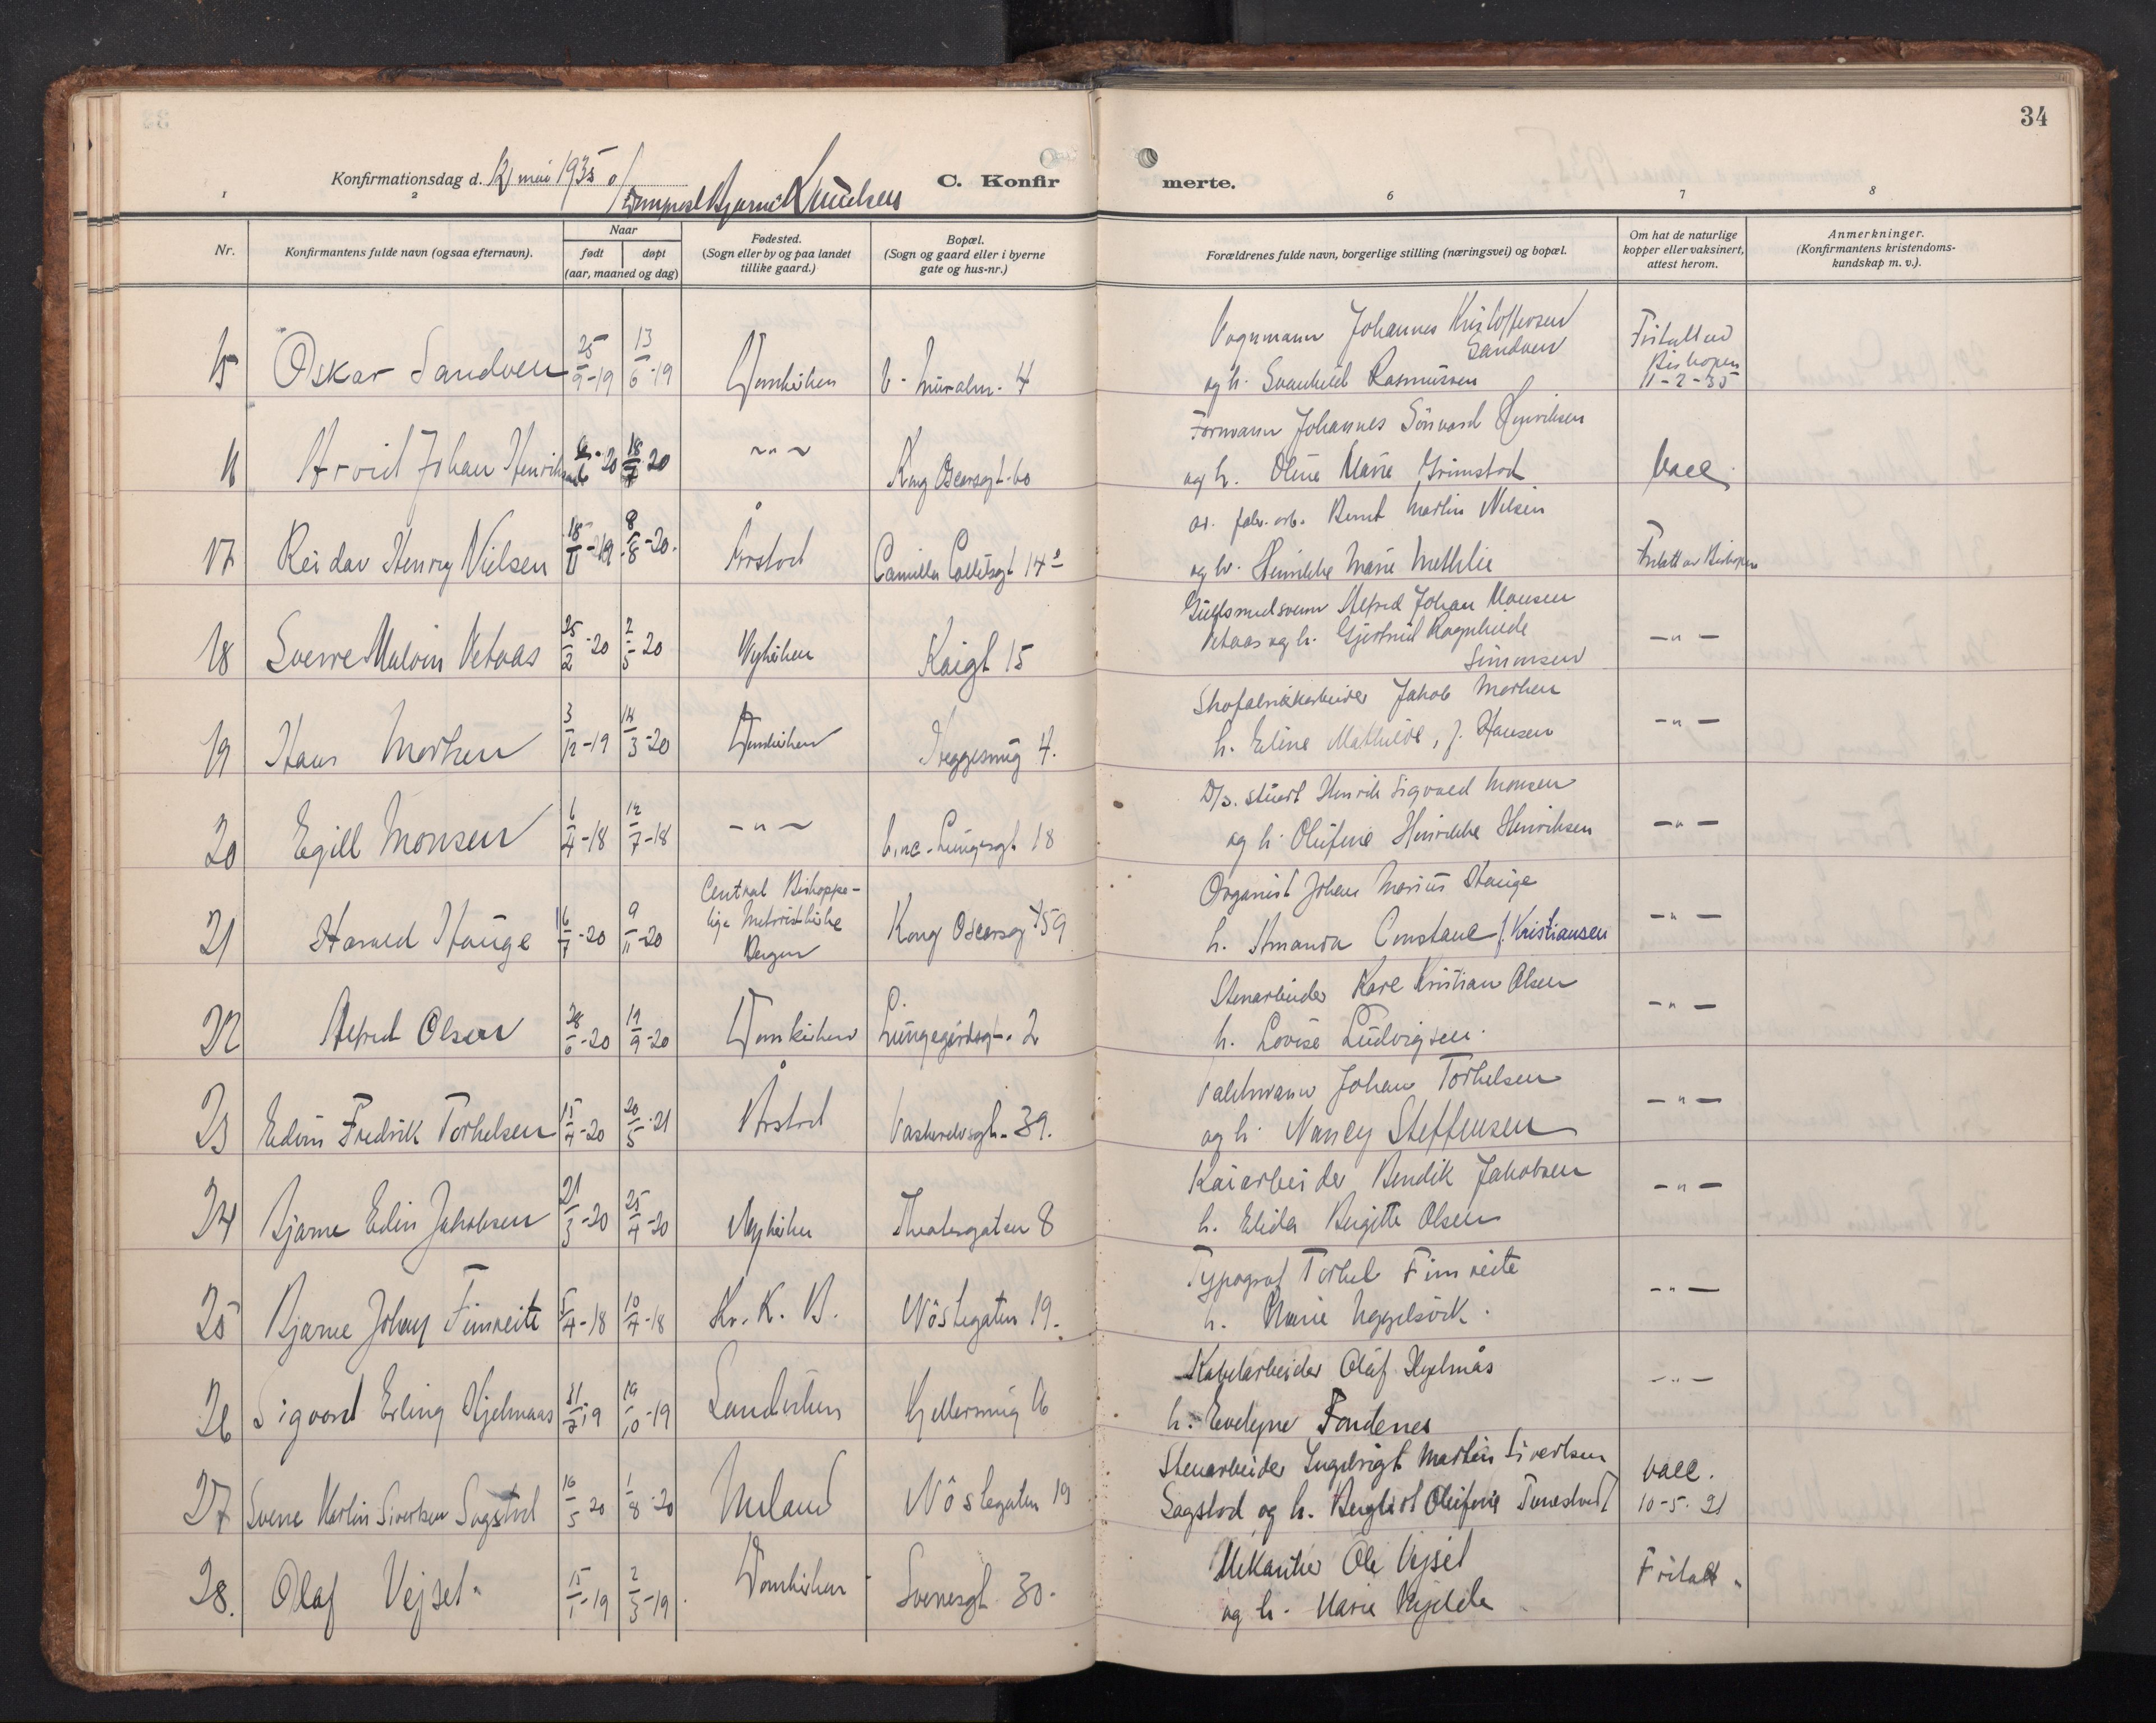 34
Konfirmationsdag d. 12 mai 1935 C. Konfirmerte.
Knudsen
1 2 6 7 8
Nr. Konfirmantens fulde navn (ogsaa efternavn). Naar født døpt (aar, maaned og dag) Fødested. (Sogn eller by og paa landet tillike gaard.) Bopæl. (Sogn og gaard eller i byerne gate og hus-nr.) Forældrenes fulde navn, borgerlige stilling (næringsvei) og bopæl. Om hat de naturlige kopper eller vaksinert, attest herom. Anmerkninger. (Konfirmantens kristendoms-kundskap m. v.).
15 Oskar Sandven 25/9-19 13/6-19 Domkirken 4 Vognmann Johannes Kristoffersen Sandven
og h. Svanhild Rasmussen Fritatt av Biskopen 11-2-35
16 Arvid Johan Henriksen 20 18/7 20 -"- Kong Oscarsgt. 60 Formann Johannes Henriksen
og h. Oline Marie Grimstad Vacc.
17 Reidar Henry Nielsen 18/11-19 8/8-20. Årstad Camilla Collettsgt 14 Bernt Martin Nilsen
og h. Henrikke Marie Methlie Fritatt av Biskopen
18 Sverre Malvin Vetaas 25/2-20 2/5 20 Nykirken Kaigt 15 Gullsmedsvenn Alfred Johan Monsen
Vetaas og h. Gjertrud Ragnhilde
Simonsen -"-
19 Hans Morken 3/12-19 14/3-20 Domkirken Dreggesmug 4. Skofabrikkarbeider Jakob Morken
h. Eline Mathilde, f. Hansen -"-
20 Egill Monsen 6/4-18 12/7-18 -"- Lungegt 18 D/s. stuert Henrik Sigvald Monsen
og h. Olufine Henrikke Henriksen -"-
21 Harald Hauge 16/7-20 9/11-20 Central Biskoppe-
lige Metodistkirke
Bergen Kong Oscarsgt 59 Organist Johan Marius Hauge
h. Amanda Constance f. Kristiansen -"-
22 Alfred Olsen 28/6-20 19/9-20 Domkirken Lungegårdsgt. 2 Stenarbeider Karl Kristian Olsen
h. Lovise Ludvigsen. -"-
23 Edvin Fredrik Torkelsen 15/4-20 20/5-21 Årstad Vaskerelvsgt. 39. Vaktmann Johan Torkelsen
og h. Nancy Steffensen -"-
24 Bjarne Edin Jakobsen 21/3-20 25/4-20 Nykirken Theatergaten 8 Kaiarbeider Bendik Jakobsen
h. Elida Birgitte Olsen -"-
25 Bjarne Johan Fimreite 5/4-18 10/7-18 Kr. K. B. Nöstegaten 19. Typograf Torkel Fimreite
h. Marie -"-
26 Sigvard Erling Hjelmaas 31/7-19 19/10-19 Sandviken 16 Kabelarbeider Olaf Hjelmås
h. Evelyne Fondenes -"-
27 Sverre Martin Sivertsen Sagstad 16/5 20 1/8-20 Meland Nöstegaten 19 Stenarbeider Ingebrigt Martin Sivertsen
Sagstad og h. Bergliot Olufine Tunestveit vacc. 10-5-21
28. Olaf Vejset 15/1-19 2/3-19. Domkirken Sverresgt. 30. Mekaniker Ole Vejset
og h. Marie Fritatt